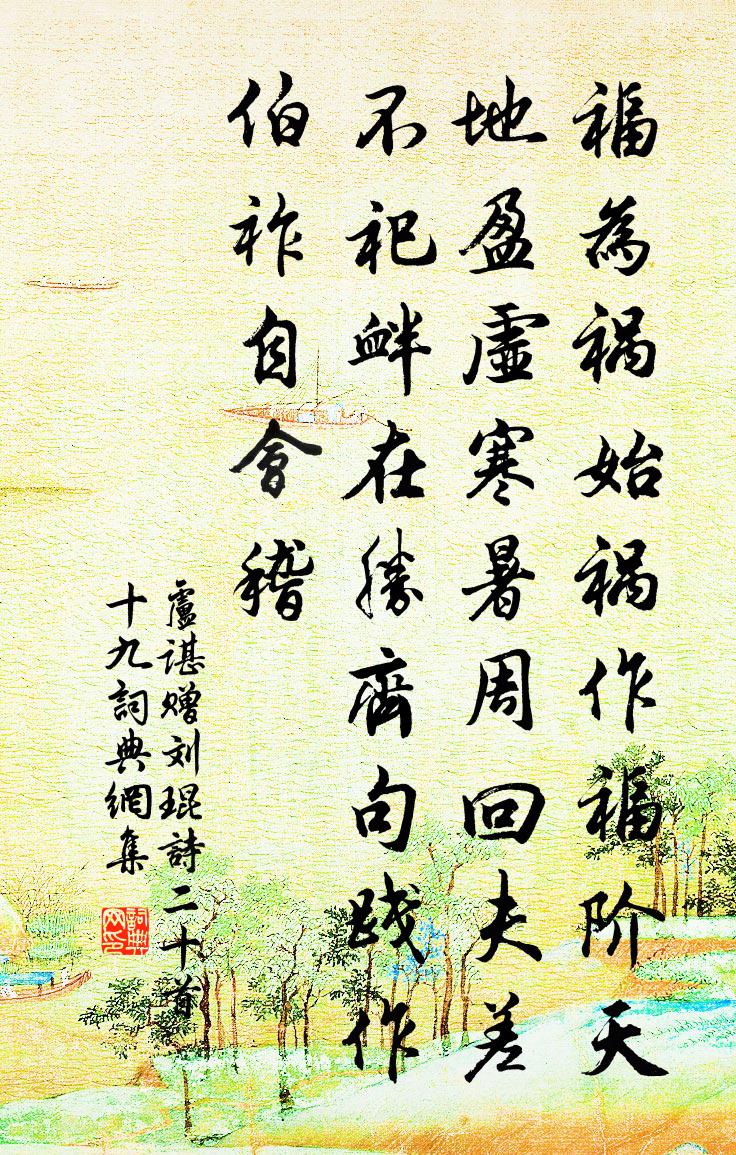 福為祸始祸作福阶天
地盈虛寒暑周回夫差
不祀衅在勝齊句践作
伯祚自會稽
盧谌赠刘琨詩二十首
十九詞典網集
詞典
网印